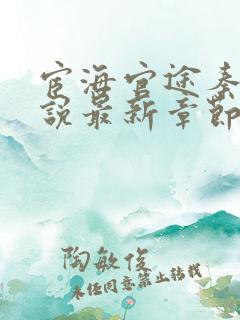 宦海官途秦
说最新章节
陶敏俊
未经同意禁止转载